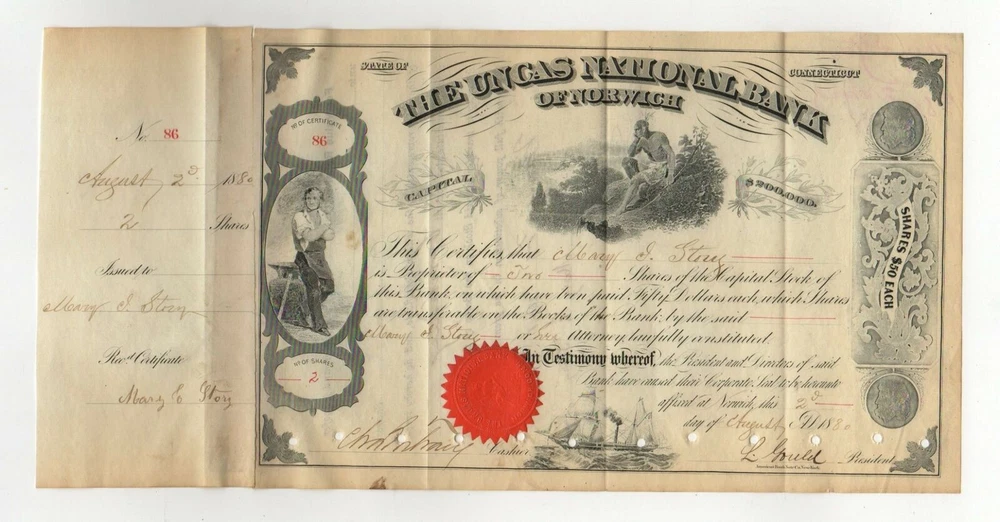 No. 86
August 2d 1880
2 Shares
Issued to
Mary E. Story
Rec'd Certificate
Mary E Story
STATE OF
CONNECTICUT
THE UNCAS NATIONAL BANK
OF NORWICH
No OF CERTIFICATE
86
CAPITAL
$200,000.
SHARES $50 EACH
This Certifies, that Mary E. Story
is Proprietor of Two Shares of the Capital Stock of
this Bank, on which have been paid Fifty Dollars each, which Shares
are transferable on the Books of the Bank, by the said
Mary E. Story or her Attorney, lawfully constituted.
No OF SHARES
2
In Testimony whereof, the President and Directors of said
Bank have caused their Corporate Seal to be hereunto
affixed at Norwich, this 2d
day of August AD 1880
Cashier
L. Gould President